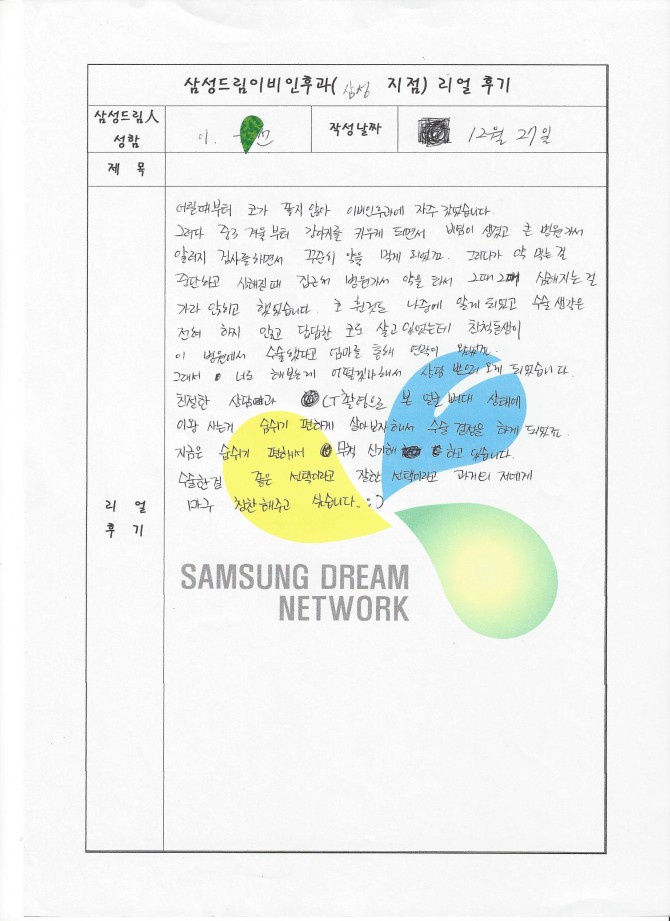 삼성드림이비인후과( 삼성 지점) 리얼 후기
삼성드림人 성함
이.
작성날짜
12월 27일
제 목
어릴때부터 코가 좋지 않아 이비인후과에 자주 갔었습니다.
그러다 중3 겨울부터 강아지를 키우게 되면서 비염이 생겼고 큰 병원가서
알러지 검사를 하면서 꾸준히 약을 먹게 되었죠. 그러다가 약 먹는걸
중단하고 심해질때 집근처 병원가서 약을 타서 그때그때 심해지는걸
가라앉히고 했었습니다. 코 휜것도 나중에 알게 되었고 수술 생각은
전혀 하지 않고 답답한 코로 살고 있었는데 친척동생이
이 병원에서 수술했다고 엄마를 통해 연락이 왔었죠.
그래서 너도 해보는게 어떻겠냐해서 상담 받으러 오게 되었습니다.
친절한 상담과 CT촬영으로 본 얼굴 뼈대 상태에
이왕 사는거 숨쉬기 편하게 살아보자해서 수술 결정을 하게 되었죠.
지금은 숨쉬기 편해서 무척 신기해 하고 있습니다.
수술한걸 좋은 선택이라고 잘한 선택이라고 과거의 저에게
마구 칭찬해주고 싶습니다. :)
리 얼
후 기
SAMSUNG DREAM
NETWORK